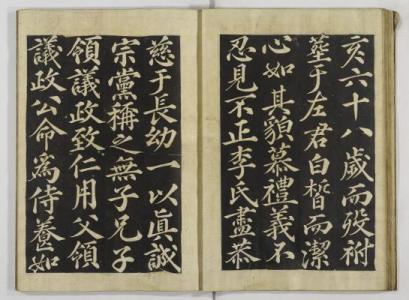 亥六十八歲而歿祔
塟于左君白晳而潔
心如其貌慕禮義不
忍見不正李氏盡恭
慈于長幼一以眞誠
宗黨稱之無子兄子
領議政致仁用父領
議政公命爲侍養如